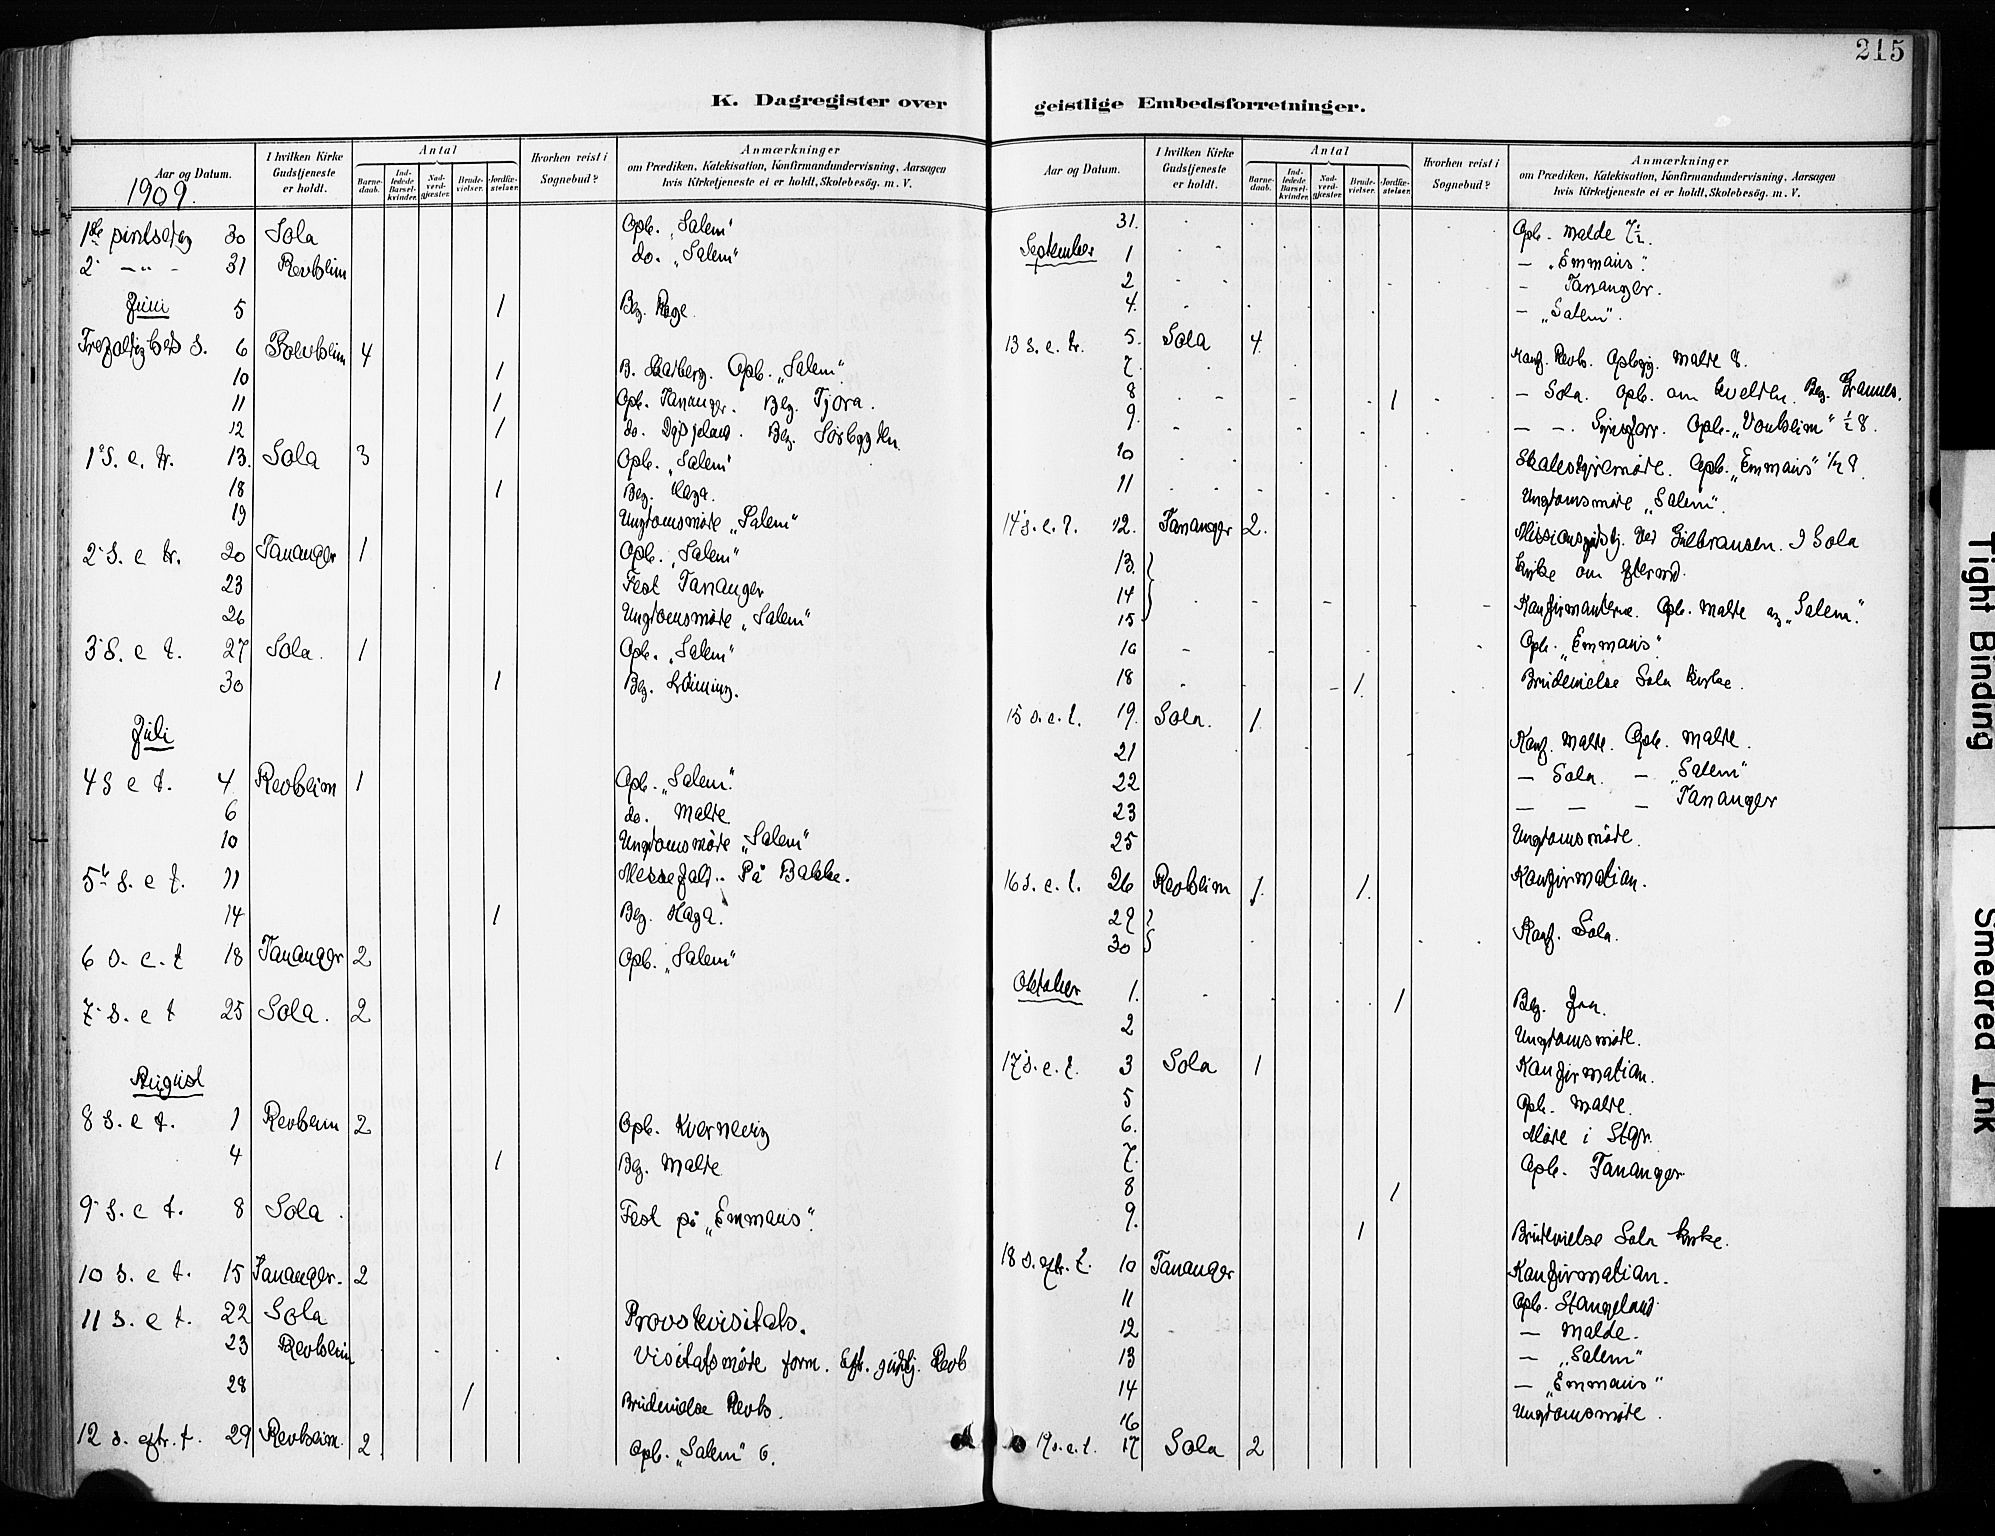 215
K. Dagregister over geistlige Embedsforretninger.
Aar og Datum. | I hvilken Kirke Gudstjeneste er holdt. | Antal | Barne-daab. | Ind-ledede Barsel-kvinder. | Nad-verd-gjester. | Brude-vielser. | Jordfæ-stelser. | Hvorhen reist i Sognebud? | Anmærkninger om Prædiken, Katekisation, Konfirmandundervisning, Aarsagen hvis Kirketjeneste ei er holdt, Skolebesøg. m. V.
1909.
30 Sola Opb. „Salem"
2 - " - 31 Revheim do. „Salem"
Juni 5 1 Beg.
6 4
10 1 B. Opb. „Salem".
11 1 Opb. Tananger. Beg. Tjora.
12 1 do. Beg.
1 S. e. tr. 13. Sola 3 Opb. „Salem"
18 1 Beg. Haga.
19 Ungdomsmöte „Salem"
2 S. e tr. 20 Tananger 1 Opb. „Salem"
23 Fest Tananger
26 Ungdomsmöte „Salem"
3 S. e t. 27 Sola. 1 Opb. „Salem"
30 1 Beg.
Juli
4 S e t. 4 Revheim 1 Opb. „Salem".
6 do. Malde
10 Ungdomsmöte „Salem"
5 s. e t. 11 Messefald. På Bakke.
14 1 Beg. Haga.
6 s. e. t 18 Tananger 2 Opb. „Salem"
7 s. e t 25 Sola. 2
August
8 s. e t. 1 Revheim 2 Opb. Kvernevig
4 1 Beg. Malde
9 s. e t. 8 Sola. Fest på „Emmaus".
10 s. e t. 15 Tananger. 2
11 s. e t. 22 Sola Provstevisitats.
23 Revheim Visitatsmöte form. Eft. gudstj. Revh
28 1 Brudevielse Revh.
12 s. eftr. t. 29 Revheim. 2 Opb. „Salem" 6.
Aar og Datum. | I hvilken Kirke Gudstjeneste er holdt. | Antal | Barne-daab. | Ind-ledede Barsel-kvinder. | Nad-verd-gjester. | Brude-vielser. | Jordfæ-stelser. | Hvorhen reist i Sognebud? | Anmærkninger om Prædiken, Katekisation, Konfirmandundervisning, Aarsagen hvis Kirketjeneste ei er holdt, Skolebesøg. m. V.
31. Opb. Malde 7½.
September 1 — „Emmaus".
2 — Tananger.
4. — „Salem".
13 s. e. tr. 5. Sola 4
7. Konf. Revh. Opbyg. Malde 8.
8 1 — Sola. Opb. om kvelden. Beg.
9. — —. Opb. ½ 8.
10 Opb. „Emmaus" ½ 8.
11 Ungdomsmöte „Salem".
14 s. e. t. 12. Tananger 2. Missionsgudstj. ved Gulbransen. I Sola
13. kirke om efterm.
14 Konfirmanterne. Opb. Malde og „Salem".
15
16 Opb. „Emmaus"
18 1. Brudevielse Sola kirke.
15 s. e. t. 19. Sola. 1
21 Konf. Malde. Opb. Malde.
22 — Sola. — „Salem"
23 — — — Tananger
25 Ungdomsmöte.
16 s. e. t. 26 Revheim 1. 1. Konfirmation.
29
30 Konf. Sola.
Oktober 1. 1 Beg.
2 Ungdomsmöte.
17 s. e. t. 3 Sola 1 Konfirmation.
5 Opb. Malde.
6. Möte i
7. Opb. Tananger
8 1
9. 1 Brudevielse Sola kirke.
18 s. eftr. t. 10 Tananger Konfirmation.
11 Opb. Stangeland.
12 — Malde.
13 — „Salem"
14 — „Emmaus"
16 Ungdomsmöte.
19 s. e. t. 17 Sola 2
Tight Binding
Smeared Ink